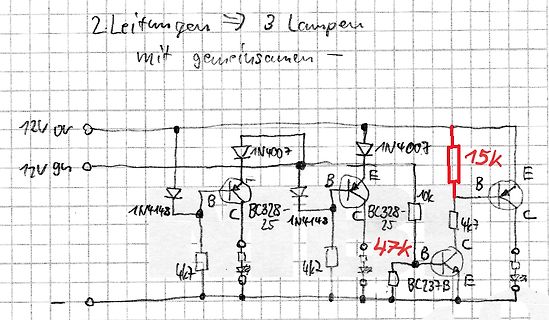 2 Leitungen ⇒ 3 Lampen
mit gemeinsamen –
12V or
12V gn
1N4007
1N4007
15k
E
B
C
BC328-
25
1N4148
1N4148
E
B
C
BC328-
25
10k
B
E
C
4k7
4k7
4k7
47k
B
C
E
BC237B
–